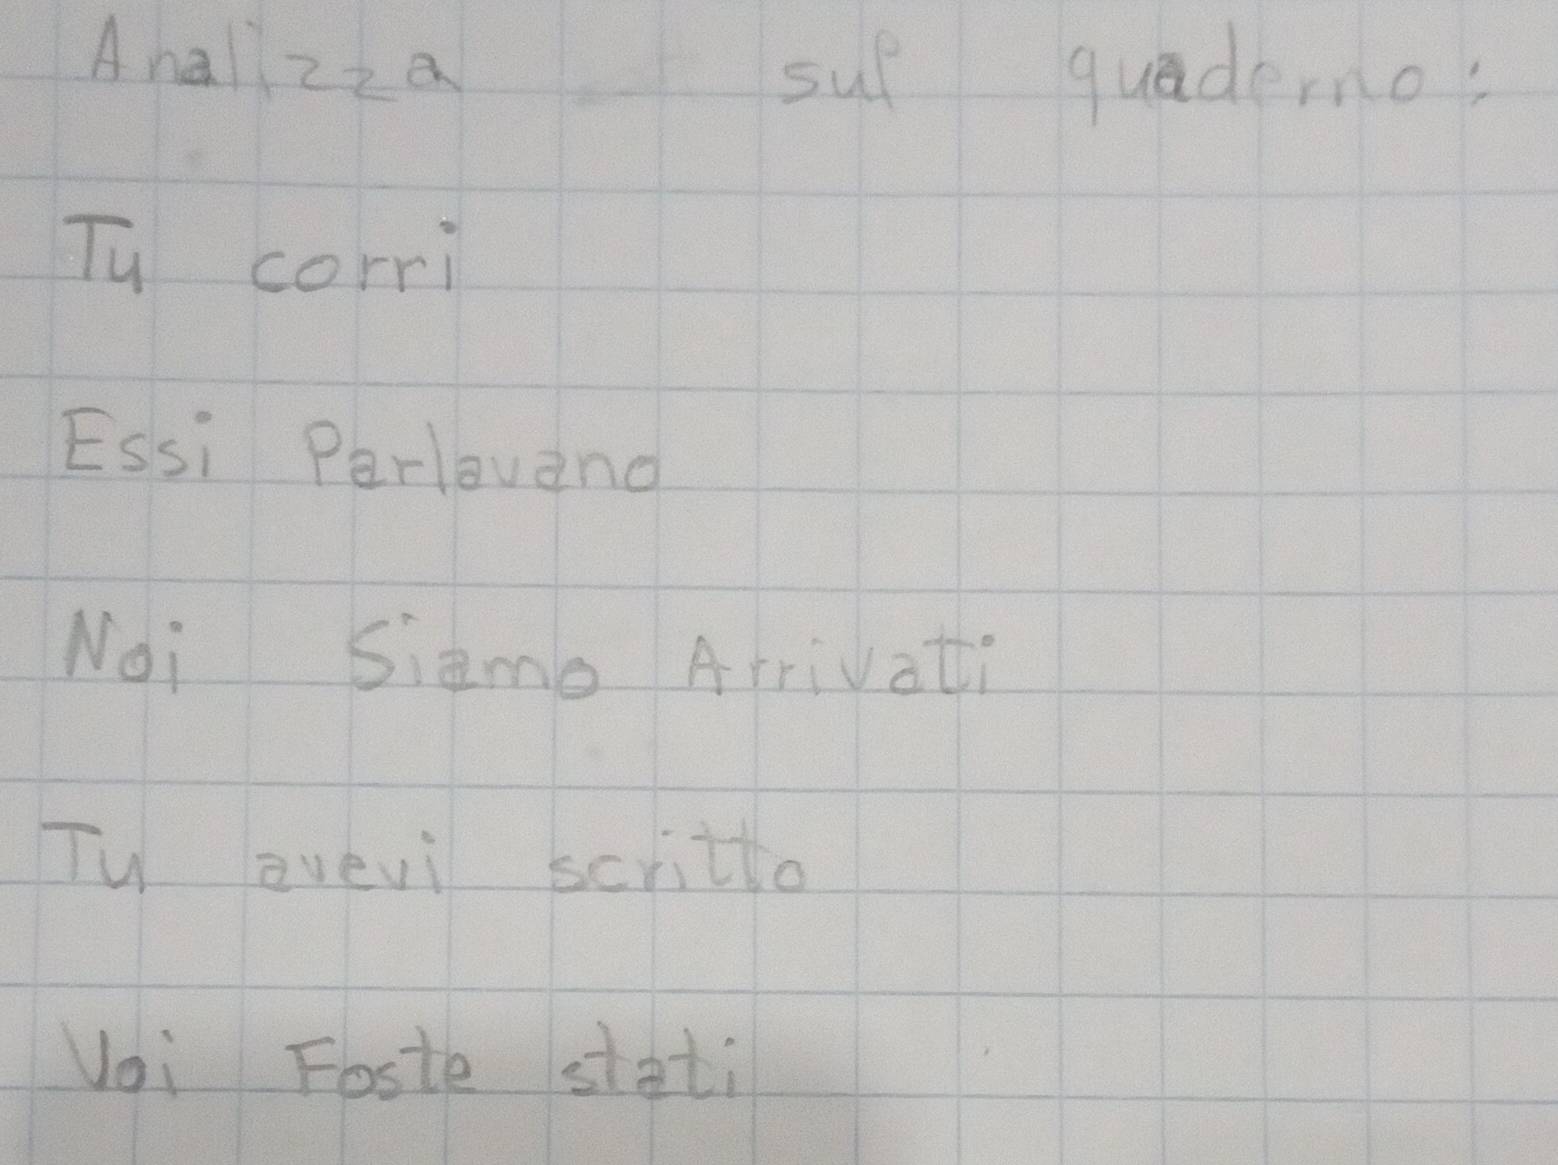 Analizza sul quaderno:
Tu corri
Essi Parlavano
Noi Siamo Arrivati
Tu avevi scritto
Voi Foste stati